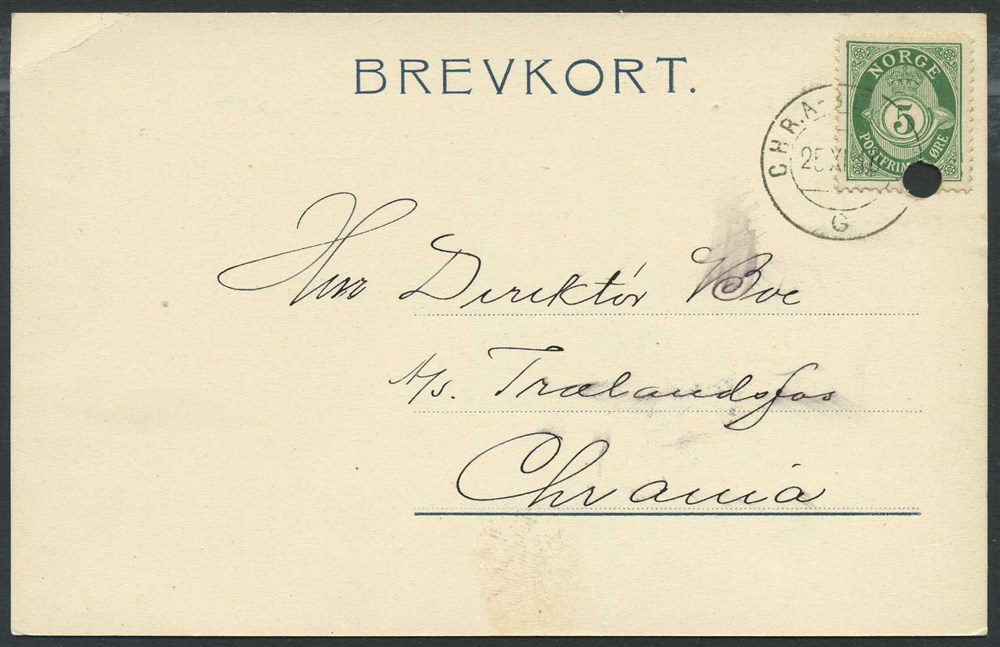 BREVKORT.
NORGE
5
POSTFRIM ØRE
CHR.A-
25 XI
G
Herr Direktør Boe
A/S. Trælandsfos
Chrania